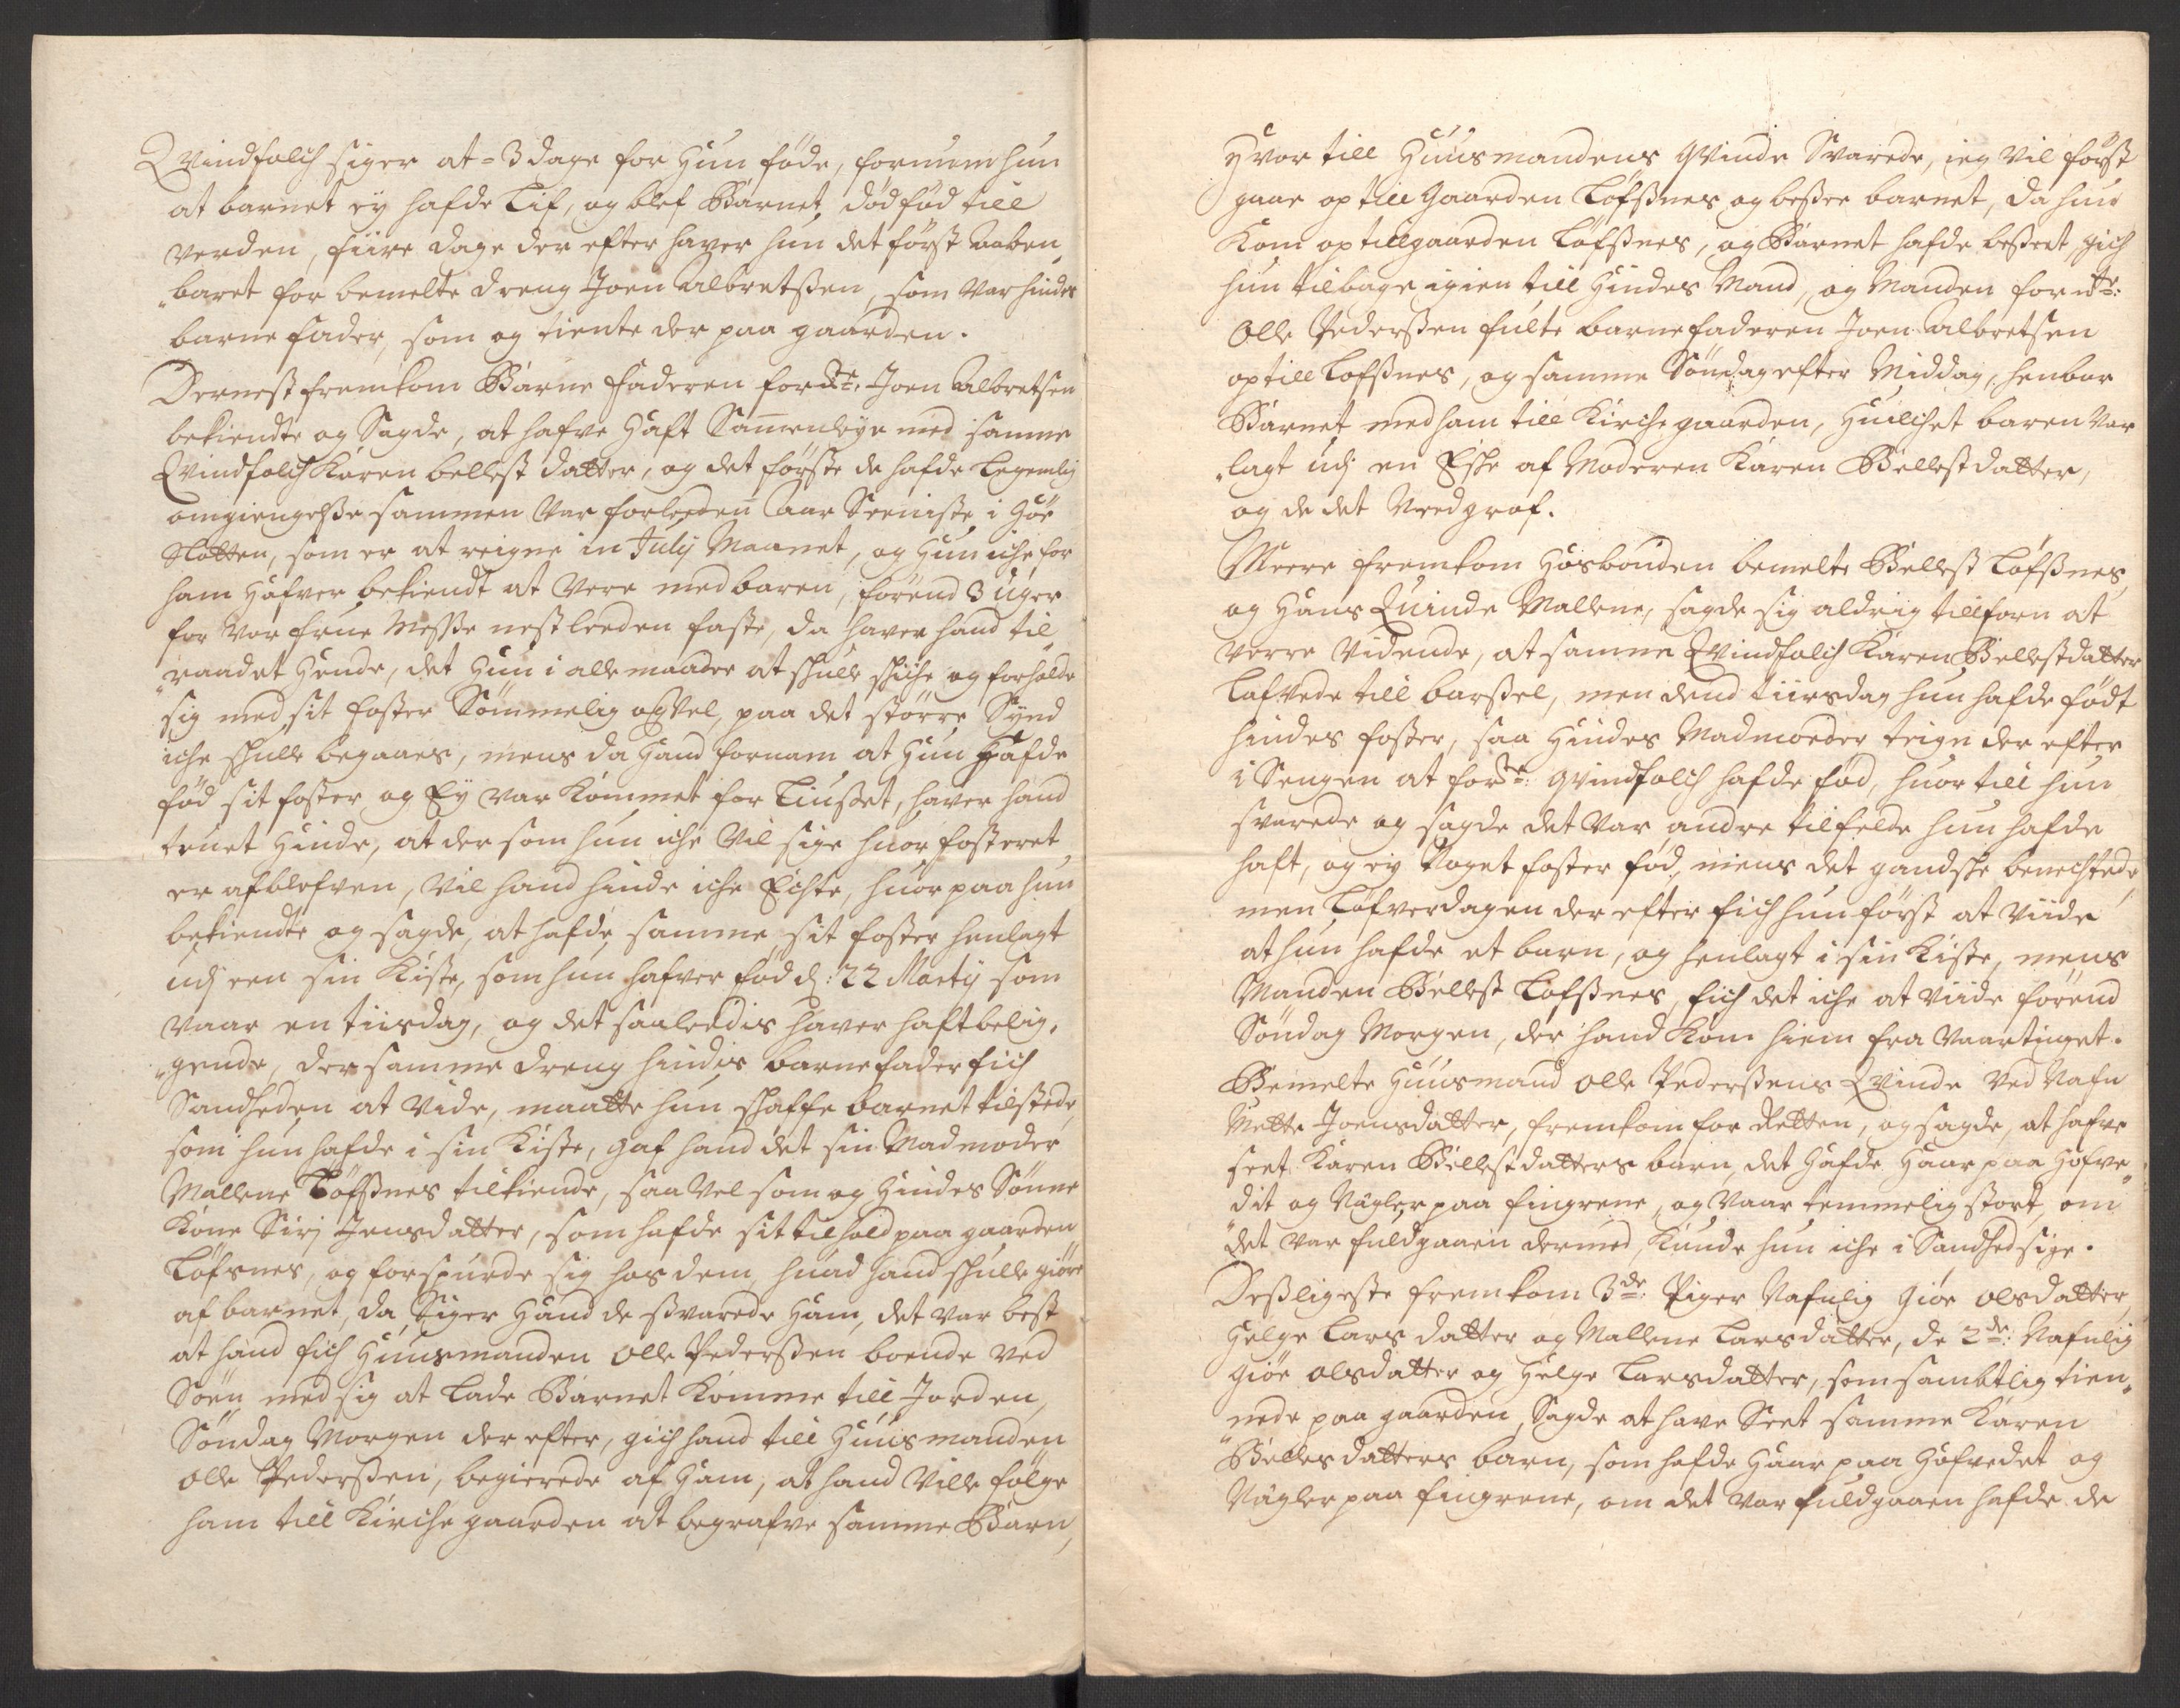 Qvindfolch siger at 3 dage for Hun føde, fornum hun
at barnet ey hafde Lif, og blef Barnet død fød till
verden, fiire dage der efter haver hun det først aaben„
„baret for bemelte dreng Joen Albretßen, som var hindes
barnefader, som og tiente der paa gaarden.
Dernest fremkom Barne faderen forde: Joen Albretsen
bekiendte og Sagde, at hafve Haft Samenleye med samme
Qvindfolch Karen bellest datter, og det første de hafde Legemlig
omgiengelße sammen var forleeden Aar Seeniste i Høe
Slotten, som er at reigne in July Maanet, og Hun iche for
ham Hafver bekiendt at vere med baren, førend 3 uger
for Vor frue Messe nestleeden faste, da haver hand til
„raadet Hende, det Hun i alle maader at schulle schiche og forholde
sig med sit foster Sømmelig og vel, paa det større Synd
iche schulle begaaes, mens da Hand fornam at Hun Hafde
fød sit foster og Ey var kommet for Liuset, haver hand
truet Hinde, at der som hun iche vil sige huor fosteret
er afblefven, vil hand hinde iche Echte, huor paa hun
bekiendte og sagde, at hafde samme sit foster henlagt
udj een sin Kiste, som hun hafver fød d: 22 Martij som
vaar en tiisdag, og det saaleedis haver haft belig„
„gende, der samme dreng hindis barnefader fich
Sandheden at vide, maatte hun schaffe barnet tilstede,
som hun hafde i sin Kiste, gaf hand det sin Madmoder
Mallene Løfßnes tilkiende, saa vel som og Hindes Sønne
Kone Sirj Jensdatter, som hafde sit tilhold paa gaarden
Løfsnes, og forspurde sig hos dem, huad hand schulle giøre
af barnet, da Siger Hand de ßvarede Ham, det var best
at hand fich Huusmanden Olle Pederßen boende ved
Søen med sig at lade Barnet komme till Jorden,
Søndag Morgen der efter, gich hand till Huusmanden
Olle Pederßen, begierede af Ham, at hand ville følge
ham till Kirche gaarden at begrafve samme Barn,
Hvor till Huusmandens qvinde Svarede, ieg vil først
gaar op till Gaarden Løfßnes og beßee barnet, da hun
kom op till gaarden Løfßnes, og Barnet hafde beßeet, gich
hun tilbage igien till Hindes Mand, og Manden fornde:
Olle Pederßen fulte barnefaderen Joen Albretsen
op till Løfßnes, og samme Søndag efter Middag, henbar
Barnet med ham till Kirche gaarden, Huilchet baren var
„lagt udj en Eske af Moderen Karen Bellestdatter,
og de det Nedgrof.
Meere fremkom Hosbonden bemelte Bellest Løfßnes
og Hans Quinde Mallene, sagde sig aldrig tillforn at
verre vidende, at samme Qvindfolch Karen Bellestdatter
lafvede till barßel, men dend tiirsdag hun hafde født
hindes foster, saa Hindes Madmoeder teign der efter
i Sengen at forde: qvindfolch hafde fød, huor till hun
svarede og sagde det var andre tilfelde hun hafde
haft, og ey noget foster fød, mens det gandske benechtede,
men Løfverdagen der efter fich hun først at viide
at hun hafde et barn, og henlagt i sin Kiste, mens
Manden Bellest Løfßnes, fich det iche at viide førend
Søndag Morgen, der hand kom hiem fra vaartinget.
Bemelte Huusmand Olle Pederßens Qvinde ved Nafn
Mette Joensdatter, fremkom for Retten, og sagde, at hafve
seet Karen Bellestdatters barn, det Hafde Haar paa Hofve„
„dit og Nagler paa fingrene, og vaar temmelig stort, om
det var fuldgaaen dermed, kunde hun iche i Sandhed sige.
Desligeste fremkom 3de: Piger Nafnlig Giøe olsdatter,
Helge Lars datter og Mallene Larsdatter, de 2de: Nafnlig
Giøe olsdatter og Helge Larsdatter, som samtlig tien„
„nede paa gaarden, Sagde at have Seet samme Karen
Bellesdatters barn, som hafde Haar paa Hofvedet og
Nagler paa fingrene, om det var fuldgaaen hafde de